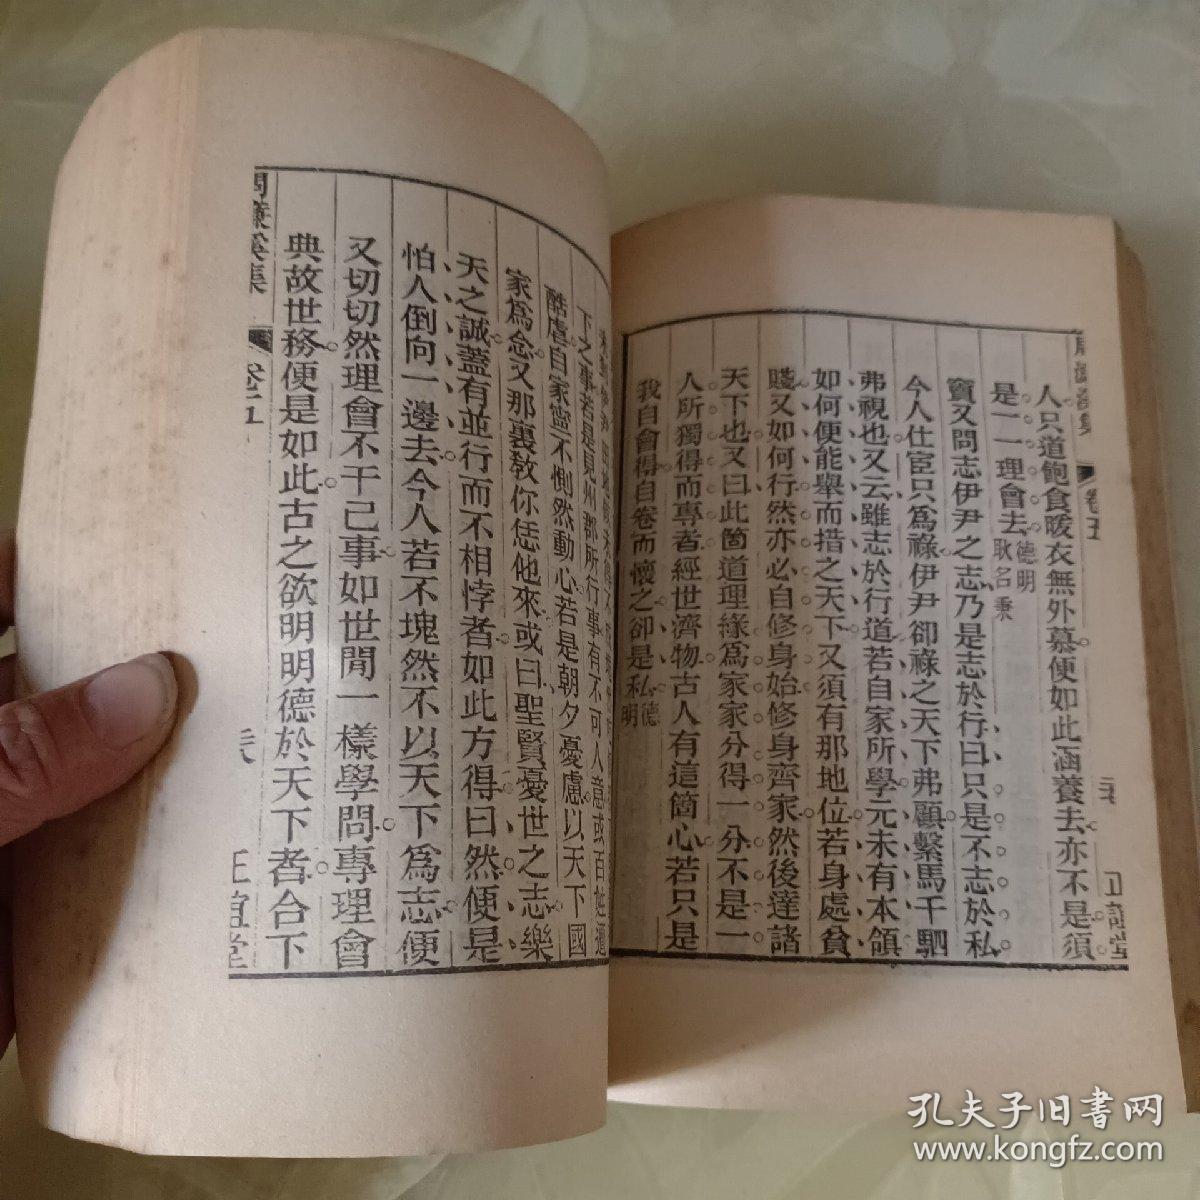 周濂溪集
卷五
正誼堂
人只道飽食暖衣無外慕便如此涵養去亦不是須
是一一理會去德明
耿名秉
竇又問志伊尹之志乃是志於行曰只是不志於私
今人仕宦只爲祿伊尹卻祿之天下弗顧繫馬千駟
弗視也又云雖志於行道若自家所學元未有本領
如何便能舉而措之天下又須有那地位若身處貧
賤又如何行然亦必自修身始修身齊家然後達諸
天下也又曰此箇道理緣爲家家分得一分不是一
人所獨得而專者經世濟物古人有這箇心若只是
我自會得自卷而懷之卻是私德
明
下之事若是見州郡所行事有不可人意或百姓遭
酷虐自家寧不惻然動心若是朝夕憂慮以天下國
家爲念又那裏敎你恁他來或曰聖賢憂世之志樂
天之誠蓋有並行而不相悖者如此方得曰然便是
怕人倒向一邊去今人若不塊然不以天下爲志便
又切切然理會不干己事如世閒一樣學問專理會
典故世務便是如此古之欲明明德於天下者合下
周濂溪集
卷五
正誼堂
孔夫子旧书网
www.kongfz.com